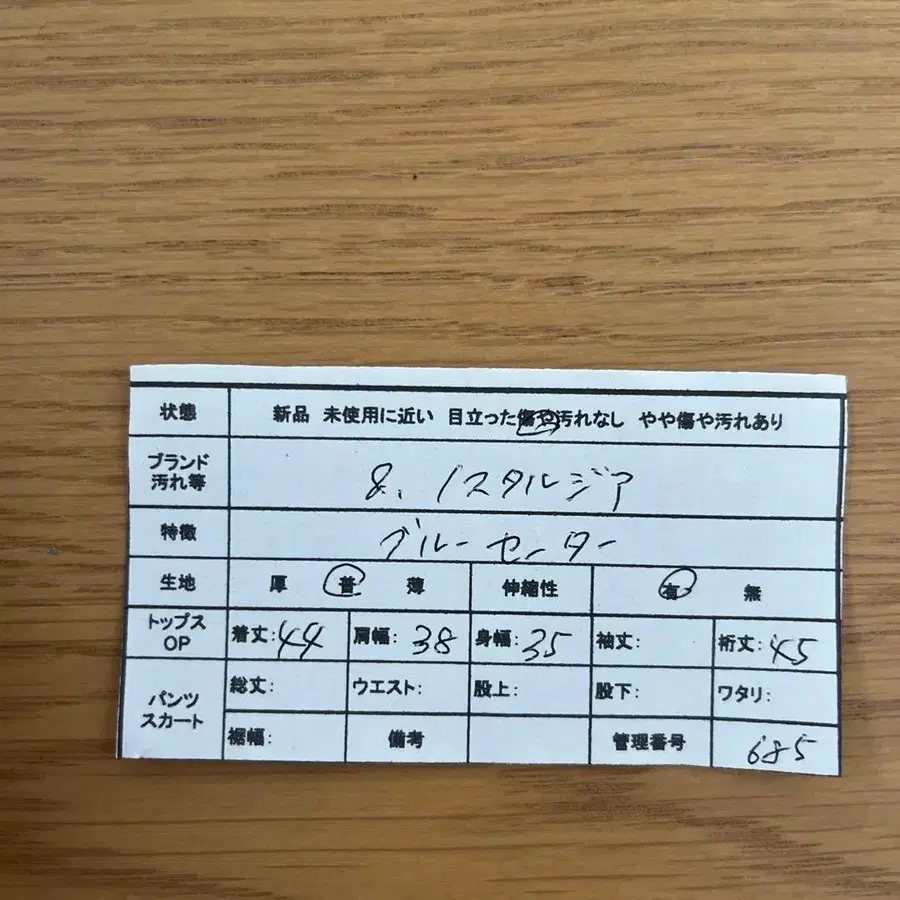 状態 新品 未使用に近い 目立った傷や汚れなし やや傷や汚れあり
ブランド
汚れ等 8. ノスタルジア
特徴 ブルーセンター
生地 厚 普 薄 伸縮性 有 無
トップス
OP 着丈:44 肩幅:38 身幅:35 袖丈: 裄丈:45
パンツ
スカート 総丈: ウエスト: 股上: 股下: ワタリ:
裾幅: 備考 管理番号 685